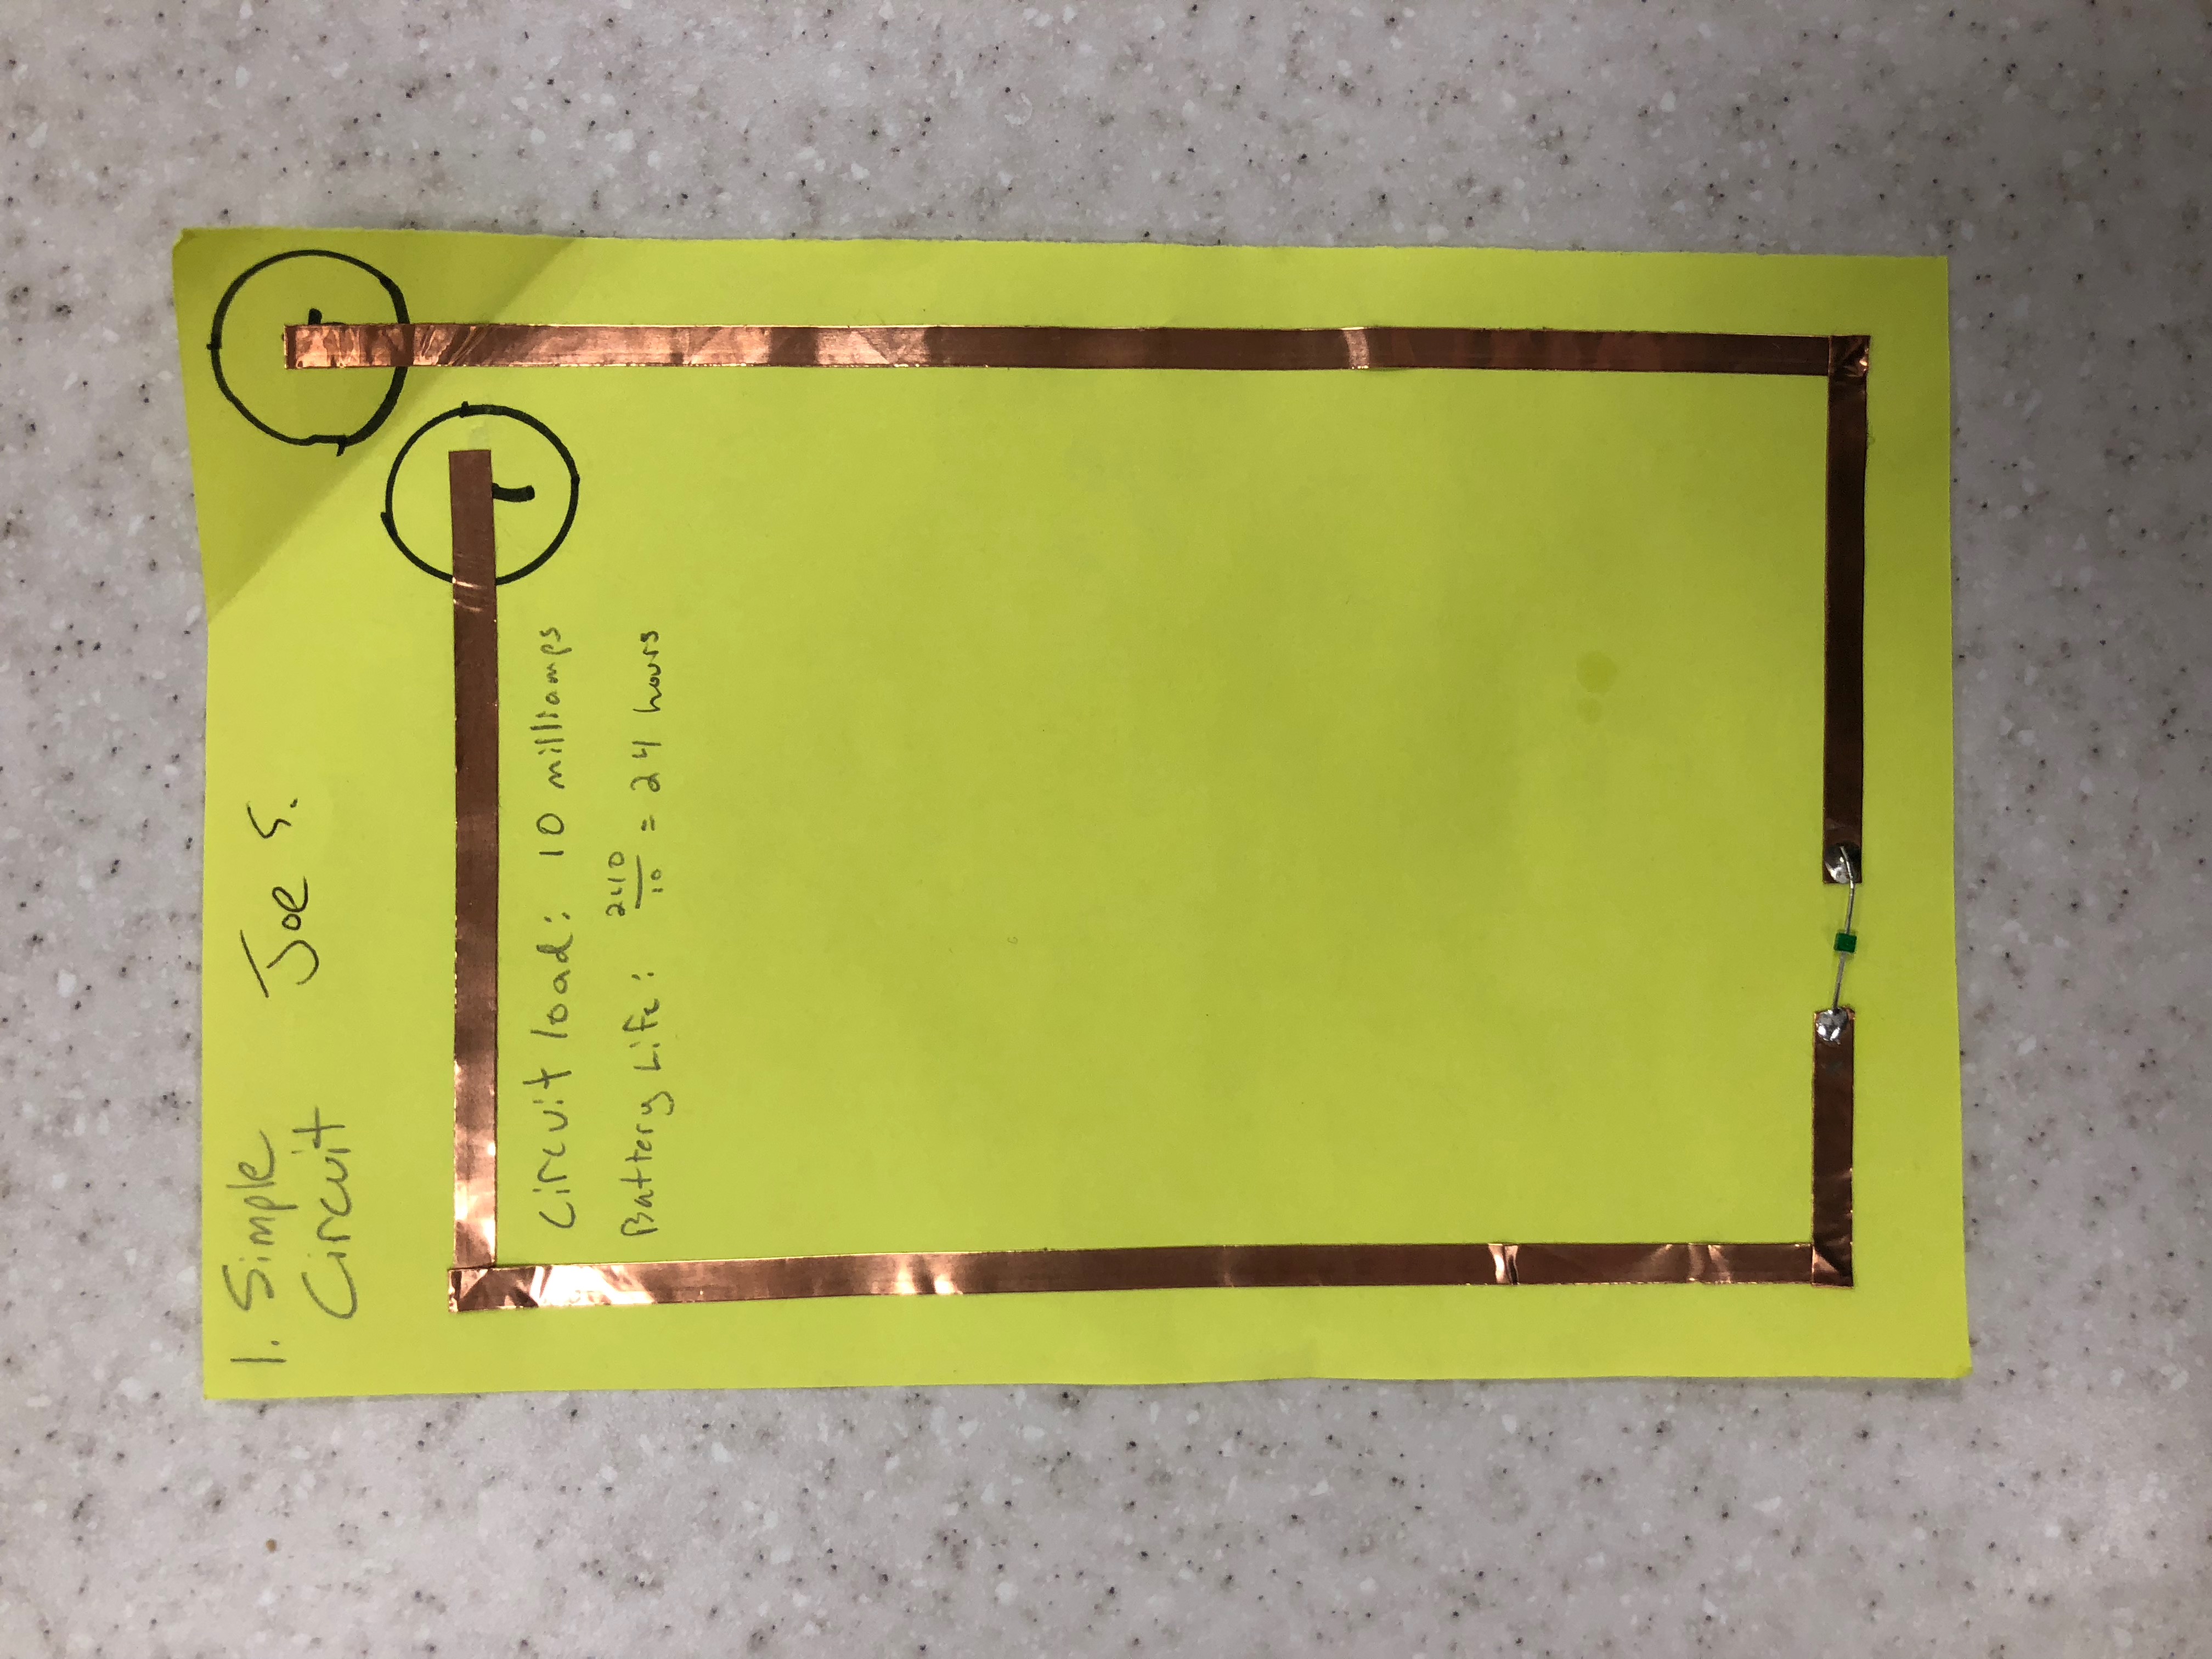 1. Simple
Circuit
Joe S.
Circuit load: 10 milliamps
Battery Life: 240/10 = 24 hours